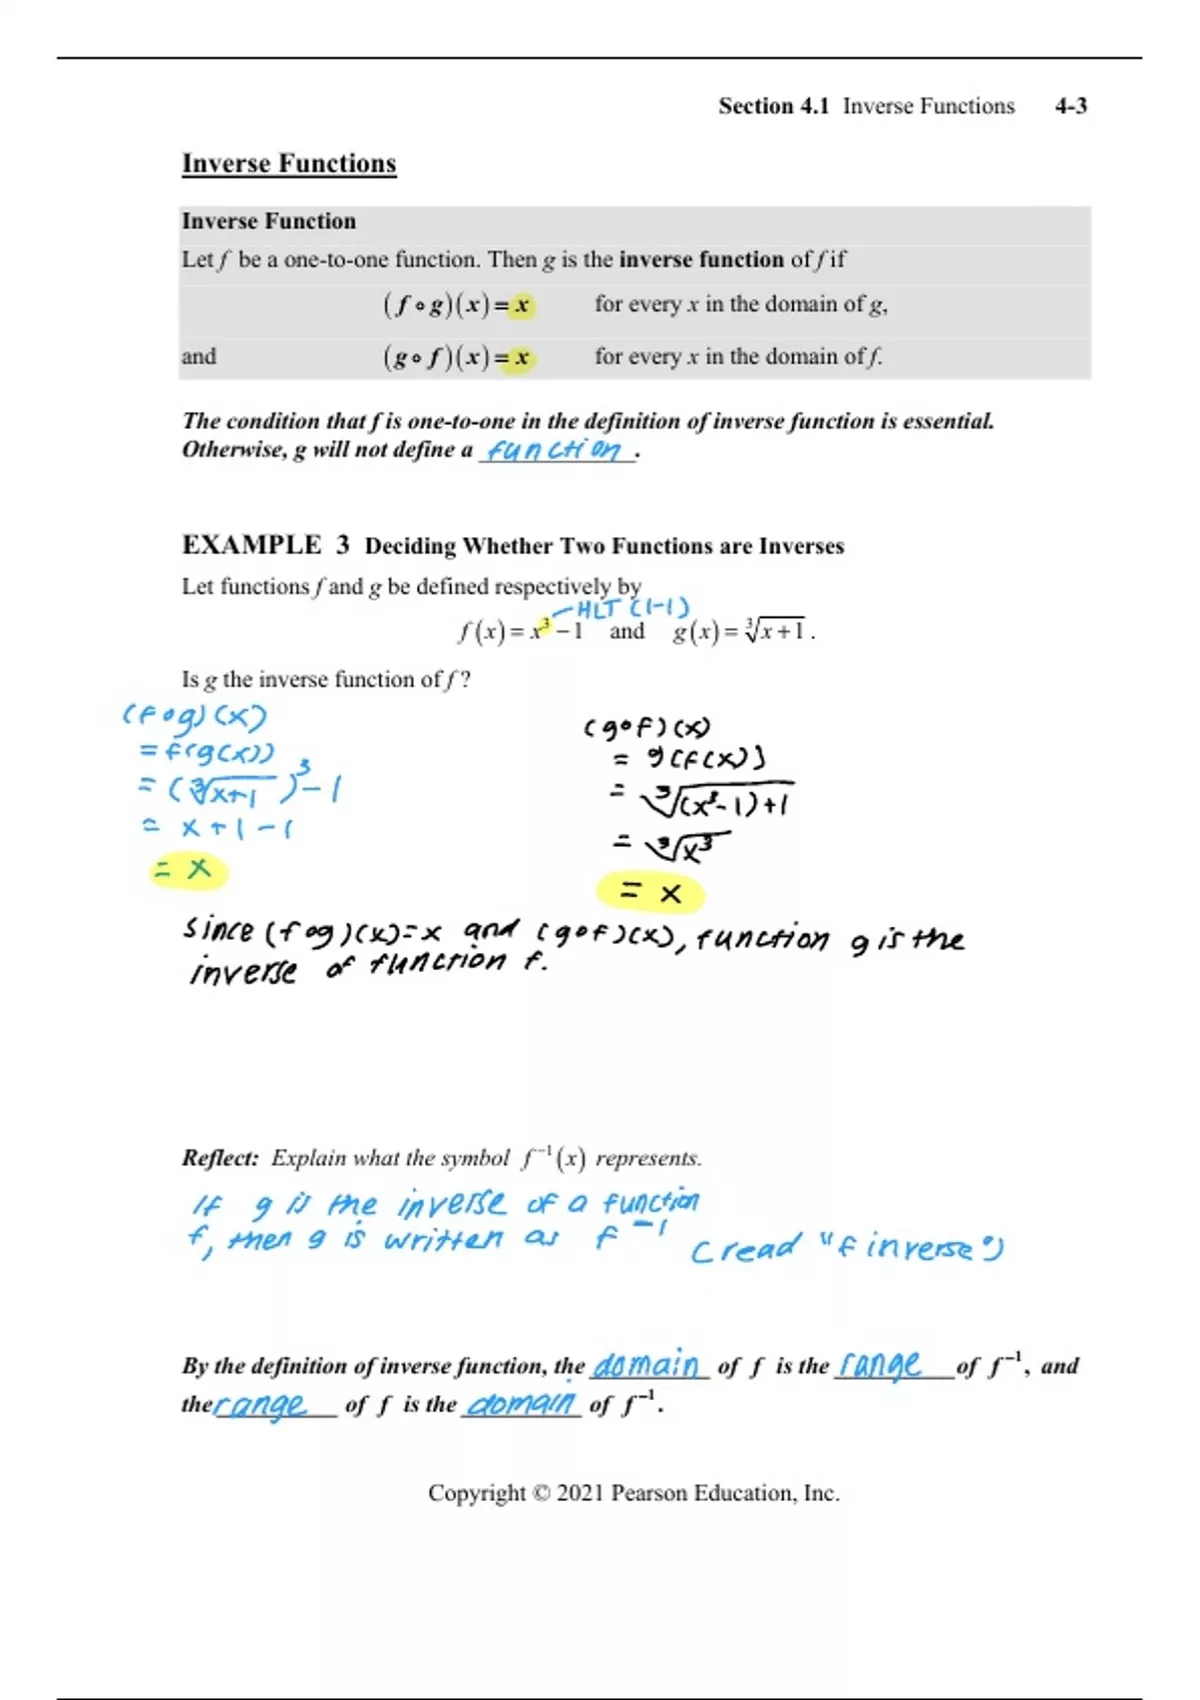 Section 4.1 Inverse Functions 4-3
Inverse Functions
Inverse Function
Let f be a one-to-one function. Then g is the inverse function of f if
(f ∘ g)(x) = x for every x in the domain of g,
and (g ∘ f)(x) = x for every x in the domain of f.
The condition that f is one-to-one in the definition of inverse function is essential.
Otherwise, g will not define a function.
EXAMPLE 3 Deciding Whether Two Functions are Inverses
Let functions f and g be defined respectively by
HLT (1-1)
f(x) = x³ − 1 and g(x) = ∛(x + 1).
Is g the inverse function of f?
(f∘g)(x)
= f(g(x))
= (∛(x+1))³ - 1
= x + 1 - 1
= x
(g∘f)(x)
= g(f(x))
= ∛((x³-1)+1)
= ∛(x³)
= x
since (f∘g)(x)=x and (g∘f)(x), function g is the
inverse of function f.
Reflect: Explain what the symbol f⁻¹(x) represents.
If g is the inverse of a function
f, then g is written as f⁻¹ (read "f inverse")
By the definition of inverse function, the domain of f is the range of f⁻¹, and
the range of f is the domain of f⁻¹.
Copyright © 2021 Pearson Education, Inc.